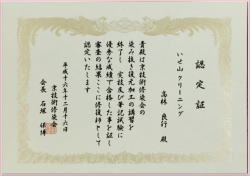 認定証
いせ山クリーニング
高林 良行 殿
貴殿は京技術修染会の
染み抜き復元加工の講習を
終了し 実技及び筆記試験に
優秀な成績で合格した事を証し
審査の結果ここに修復師として
認定いたします
平成十六年十二月十六日
京技術修染会
会長 石塚